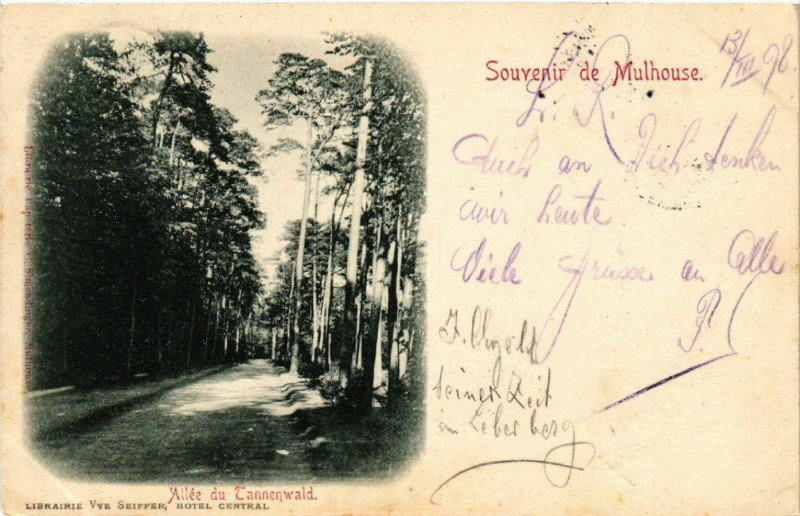 Souvenir de Mulhouse.
13/III 98
L. R.
Auch an Dich denken
wir heute
Viele Grüsse an Alle
P.
seiner Zeit
im Leberberg
Allée du Tannenwald.
LIBRAIRIE VVE SEIFFER, HOTEL CENTRAL